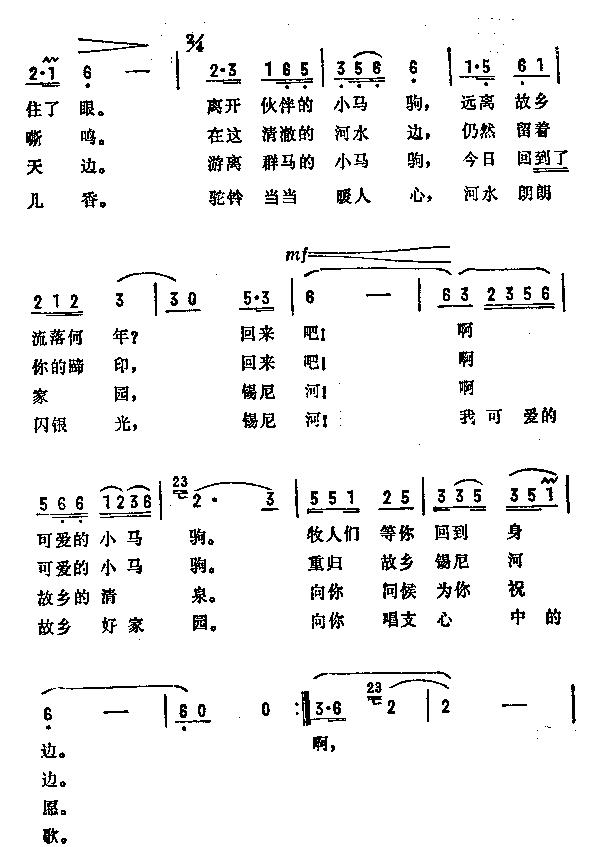 2/4
2·1 6 — | 2·3 165 356 6 | 1·5 61 |
住了 眼。 离开 伙伴的 小马 驹, 远离 故乡
嘶 鸣。 在这 清澈的 河水 边, 仍然 留着
天 边。 游离 群马的 小马 驹, 今日 回到了
儿 香。 驼铃 当当 暖人 心, 河水 朗朗
mf
212 3 | 30 5·3 | 6 — | 63 2356 |
流落何 年? 回来 吧! 啊
你的蹄 印, 回来 吧! 啊
家 园, 锡尼 河! 啊
闪银 光, 锡尼 河! 我可 爱的
566 1236 | 23 2· 3 | 551 25 | 335 351 |
可爱的 小马 驹。 牧人们 等你 回到 身
可爱的 小马 驹。 重归 故乡 锡尼 河
故乡的 清 泉。 向你 问候 为你 祝
故乡 好家 园。 向你 唱支 心 中的
6 — | 60 0 :‖ 3·6 23 2 | 2 — |
边。 啊,
边。
愿。
歌。